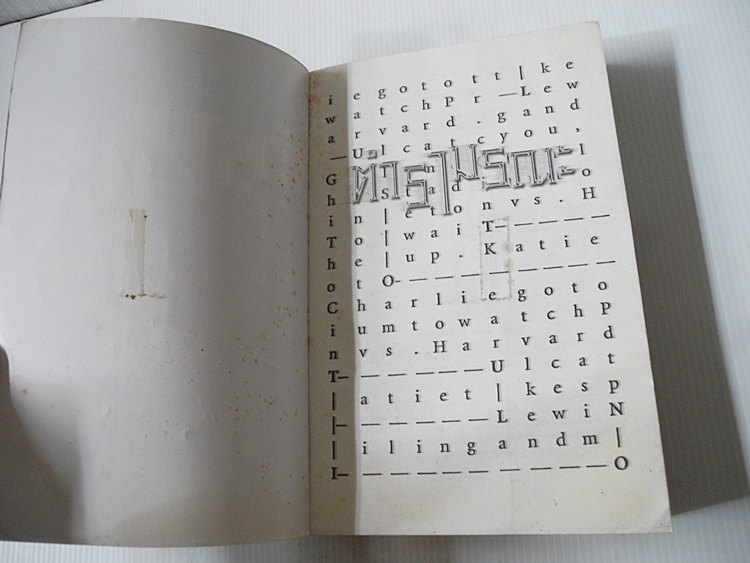 i e g o t o t t | k e
w a t c h P r — L e w
a r v a r d . g a n d
— U l c a t c y o u ,
ตำรามรณะ
G l
h S t a d i o
i n | e t o n v s . H
T o | w a i T — — — —
h e | u p . K a t i e
o t O — — — — — — — —
C h a r l i e g o t o
i u m t o w a t c h P
n v s . H a r v a r d
T — — — — — — U l c a t
| a t i e t | k e s p
| — — — — — — L e w i N
| i l i n g a n d m |
I — — — — — — — — — — O